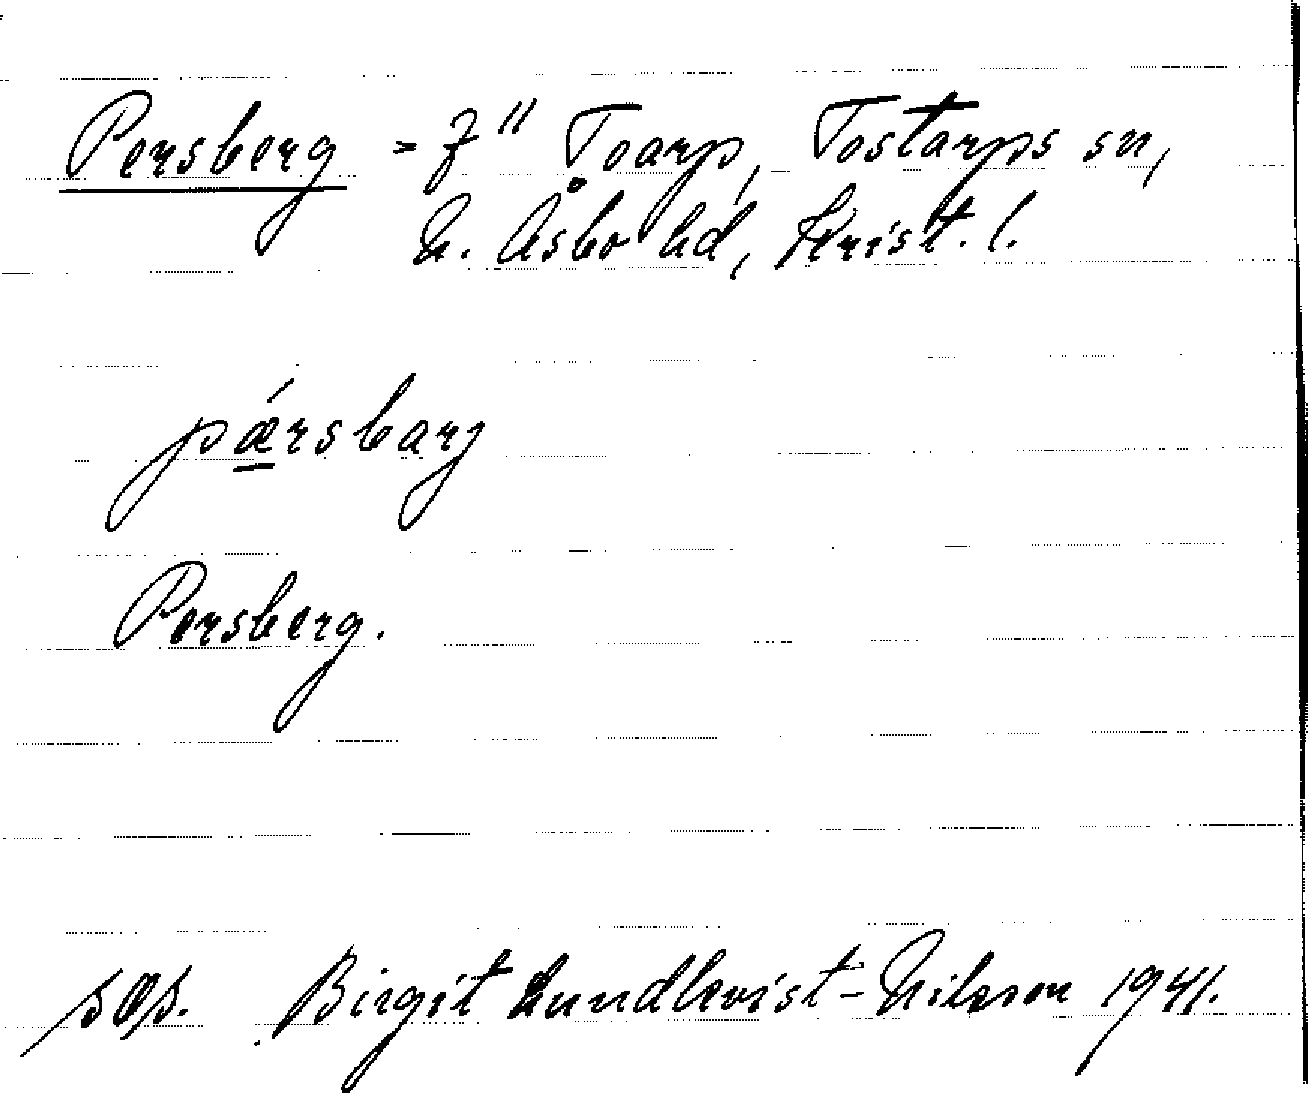 Persberg = 7" Toarp, Tostarps sn,
N. Åsbo hd, Krist. l.
pǽrsbarj
Persberg.
sæs. Birgit Lundkvist-Nilsson 1941.